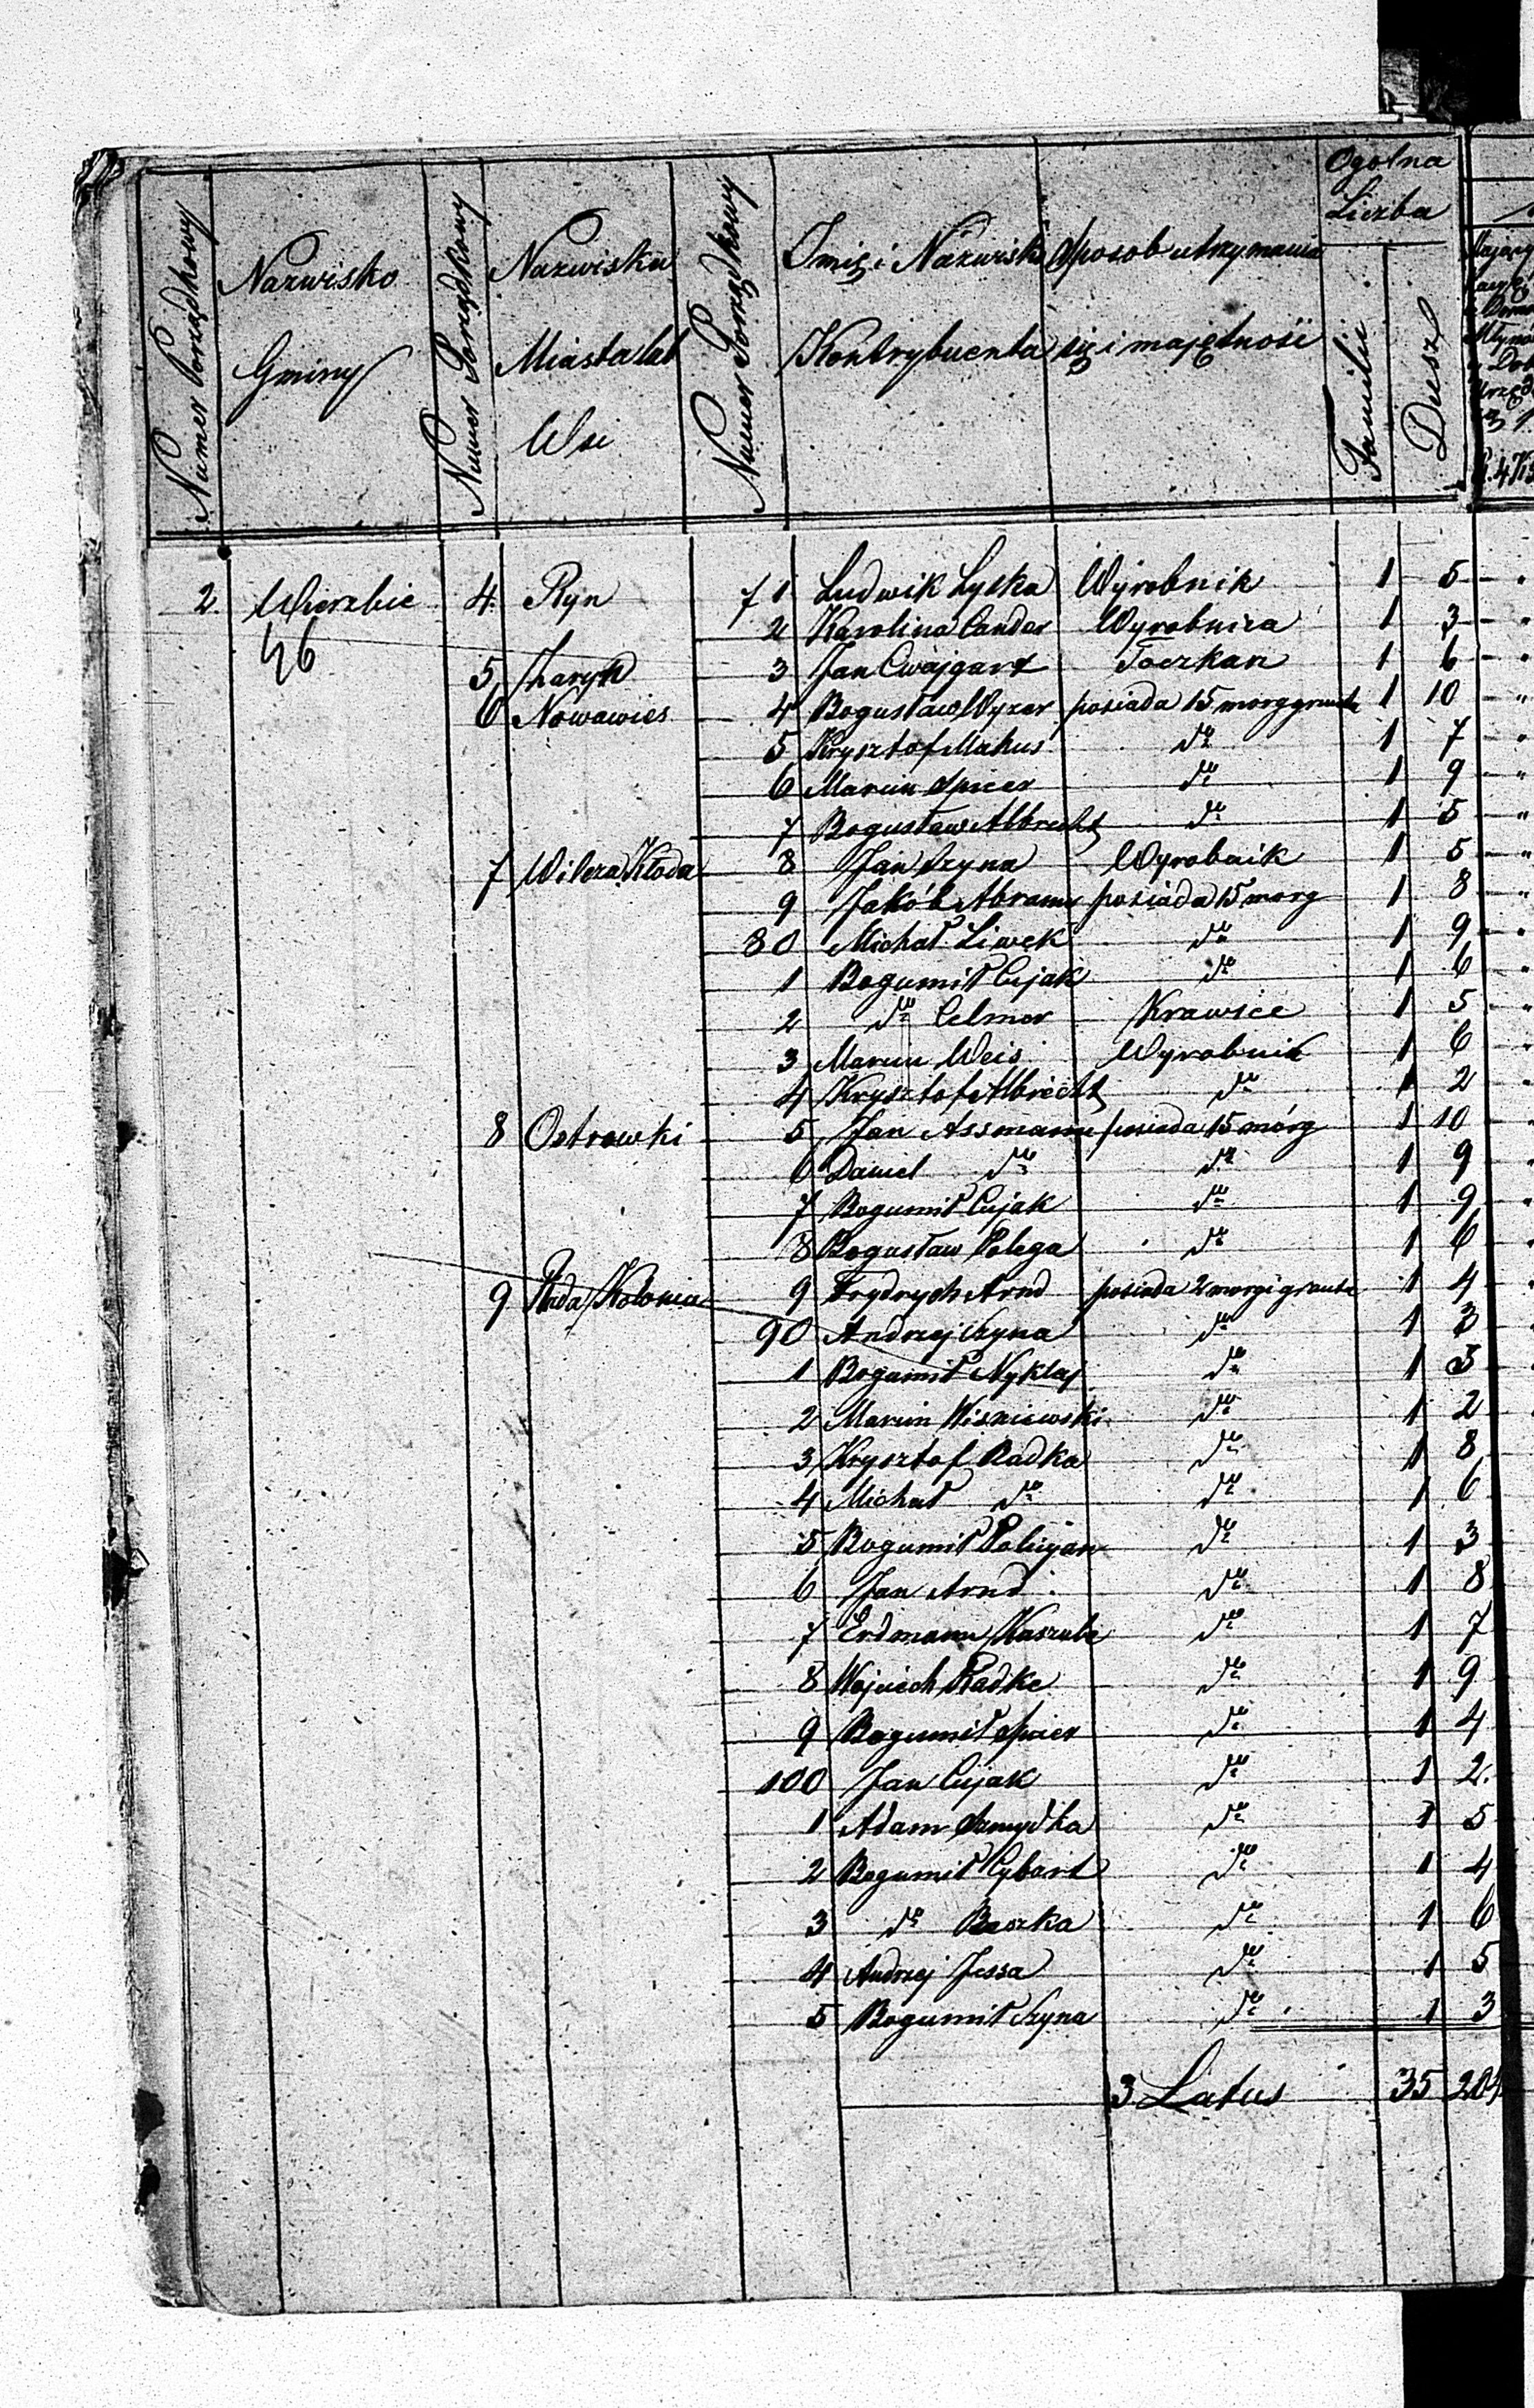 Numer Porządkowy
Nazwisko
Gminy
Numer Porządkowy
Nazwisko
Miasta lub
Wsi
Numer Porządkowy
Imię i Nazwisko
Kontrybuenta
Sposob utrzymania
się i majętności
Ogolna
Liczba
Familii
Dusz
2. Wierzbie 4. Ryn 71 Ludwik Lyska Wyrobnik 1 5
46
2 Karolina Cander Wyrobnica 1 3
5 3 Jan Cwajgart 1 6
6 Nowawies 4 Bogusław Wyzer posiada 15 morg gruntu 1 10
5 Krysztof Makus do 1 7
6 Marcin Spicer do 1 9
7 Bogusław Albrecht do 1 5
7 Wilcza Kłoda 8 Jan Szyna Wyrobnik 1 5
9 Jakób Abram posiada 15 morg 1 8
80 Michał Liwek do 1 9
1 Bogumił Cujak do 1 6
2 do Celmer Krawiec 1 5
3 Marcin Weis Wyrobnik 1 6
4 Krysztof Albrecht do 1 2
8 Ostrowki 5 Jan Assmann posiada 15 mórg 1 10
6 Daniel do do 1 9
7 Bogumił Cujak do 1 9
8 Bogusław Polega do 1 6
9 Ruda Kolonia 9 Frydrych Arnd posiada 2 morgi gruntu 1 4
90 Andrzej Szyna do 1 3
1 Bogumił Nyklaj do 1 5
2 Marcin Wiszniewski do 1 2
3 Krysztof Radka do 1 8
4 Michał do do 1 6
5 Bogumił do 1 3
6 Jan Arnd do 1 8
7 Erdmann Kaszube do 1 7
8 Wojciech Radke do 1 9
9 Bogumił Spicer do 1 4
100 Jan Cujak do 1 2.
1 Adam Szmydka do 1 5
2 Bogumił Cybart do 1 4
3 do Beszka do 1 6
4 Andrzej Jessa do 1 5
5 Bogumił Szyna do 1 3
3 Latus 35 204